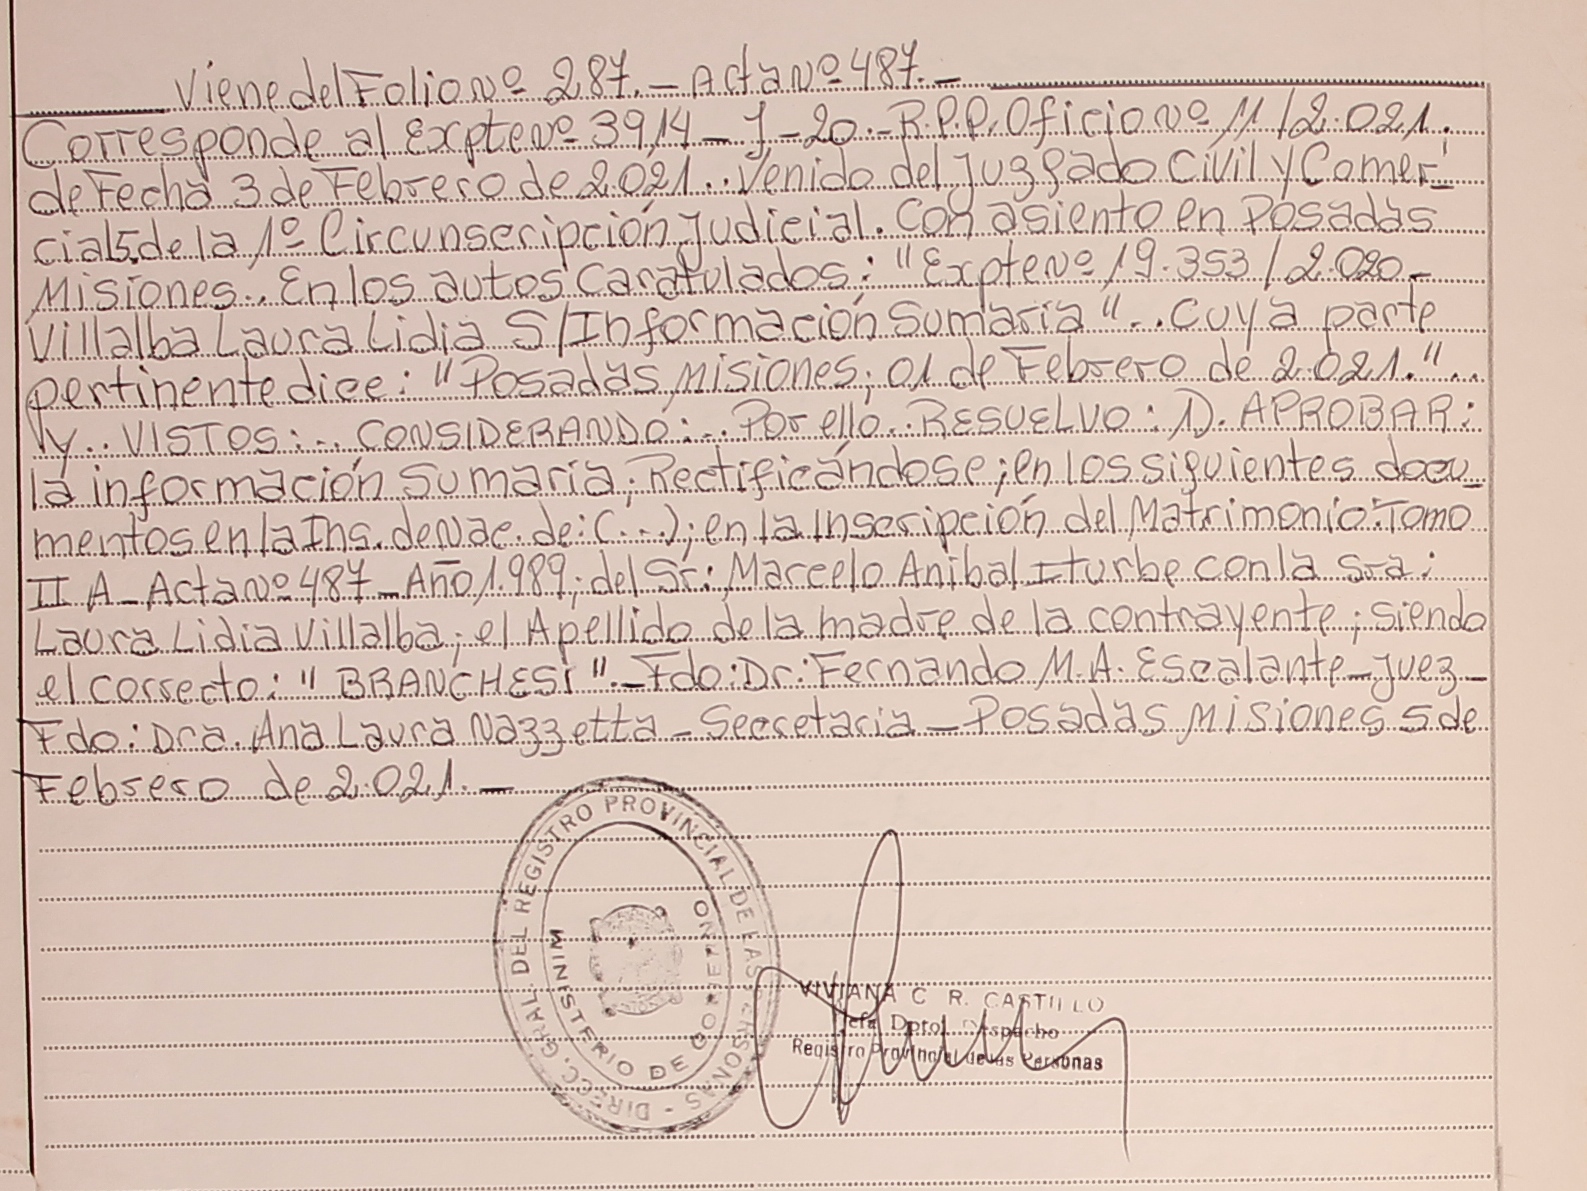 Viene del Folio Nº 287.- Acta Nº 487.-
Corresponde al Expte Nº 3914-J-20.-R.P.P. Oficio Nº 11/2.021.
de Fecha 3 de Febrero de 2.021.. Venido del Juzgado Civil y Comer-
cial 5 de la 1º Circunscripción Judicial. Con asiento en Posadas
Misiones.. En los autos Caratulados: "Expte Nº 19.353/2.020-
Villalba Laura Lidia S/Información Sumaria".. Cuya parte
pertinente dice: "Posadas Misiones; 01 de Febrero de 2.021."..
Y.. VISTOS:.. CONSIDERANDO:.. Por ello.. RESUELVO: 1). APROBAR:
la información Sumaria; Rectificándose; en los siguientes docu-
mentos en la Ins. de Nac. de: (...); en la Inscripción del Matrimonio: Tomo
II A- Acta Nº 487- Año 1.989; del Sr: Marcelo Anibal Iturbe con la Sra:
Laura Lidia Villalba; el Apellido de la madre de la contrayente; siendo
el correcto: "BRANCHESI".-Fdo: Dr: Fernando M.A. Escalante-Juez-
Fdo: Dra. Ana Laura Nazzetta-Secretaria-Posadas Misiones 5 de
Febrero de 2.021.-
DIRECC. GRAL. DEL REGISTRO PROVINCIAL DE LAS PERSONAS -
MINISTERIO DE GOBIERNO
VIVIANA C R. CASTILLO
Jefa Dpto. Despacho
Registro Provincial de las Personas